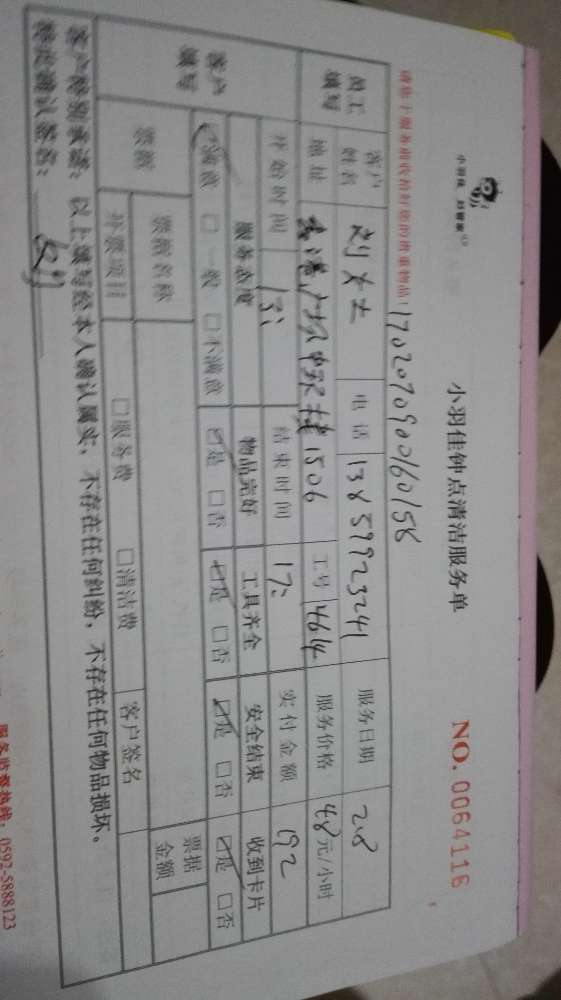 小羽佳 好管家
小羽佳钟点清洁服务单
NO. 0064116
请您于服务前收拾好您的贵重物品！
1702070900160158
员工填写
客户姓名 刘女士 电话 13859923241 服务日期 2.8
地址 广场中 楼1506 工号 4614 服务价格 48元/小时
开始时间 13: 结束时间 17: 实付金额 192
客户填写
服务态度 物品完好 工具齐全 安全结束 收到卡片
☑满意 □一般 □不满意 ☑是 □否 ☑是 □否 ☑是 □否 ☑是 □否
票据
票据名称
票据金额
开票项目 □服务费 □清洁费 客户签名
客户特别承诺：以上填写经本人确认属实，不存在任何纠纷，不存在任何物品损坏。
特此确认签名：
服务监督热线：0592-5888123